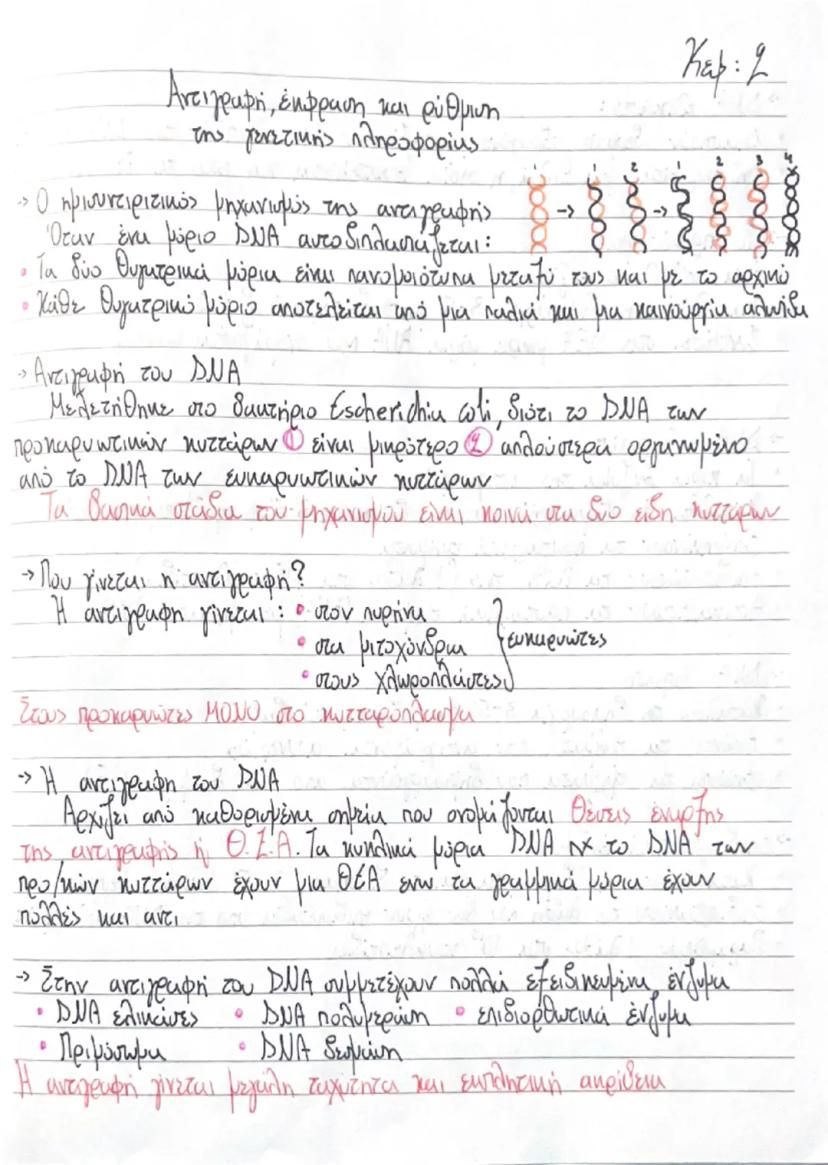 Κεφ: 2
Αντιγραφή, έκφραση και ρύθμιση
της γενετικής πληροφορίας
1 1 2 1 2 3 4
→ Ο ημισυντηρητικός μηχανισμός της αντιγραφής
Όταν ένα μόριο DNA αυτοδιπλασιάζεται:
• Τα δύο θυγατρικά μόρια είναι πανομοιότυπα μεταξύ τους και με το αρχικό
• Κάθε θυγατρικό μόριο αποτελείται από μια παλιά και μια καινούργια αλυσίδα
→ Αντιγραφή του DNA
Μελετήθηκε στο βακτήριο Escherichia coli, διότι το DNA των
προκαρυωτικών κυττάρων ① είναι μικρότερο ② απλούστερα οργανωμένο
από το DNA των ευκαρυωτικών κυττάρων
Τα βασικά στάδια του μηχανισμού είναι κοινά στα δυο είδη κυττάρων
→ Που γίνεται η αντιγραφή?
Η αντιγραφή γίνεται: • στον πυρήνα
• στα μιτοχόνδρια } ευκαρυώτες
• στους χλωροπλάστες
Στους προκαρυώτες ΜΟΝΟ στο κυτταρόπλασμα
→ Η αντιγραφή του DNA
Αρχίζει από καθορισμένα σημεία που ονομάζονται θέσεις έναρξης
της αντιγραφής ή Θ.Ε.Α. Τα κυκλικά μόρια DNA πχ το DNA των
προ/κών κυττάρων έχουν μια ΘΕΑ ενω τα γραμμικά μόρια έχουν
πολλές και αντι
→ Στην αντιγραφή του DNA συμμετέχουν πολλά εξειδικευμένα ένζυμα
• DNA ελικάσες • DNA πολυμεράση • επιδιορθωτικά ένζυμα
• Πριμόσωμα • DNA δεσμάση
Η αντιγραφή γίνεται μεγάλη ταχύτητα και εκπληκτική ακρίβεια